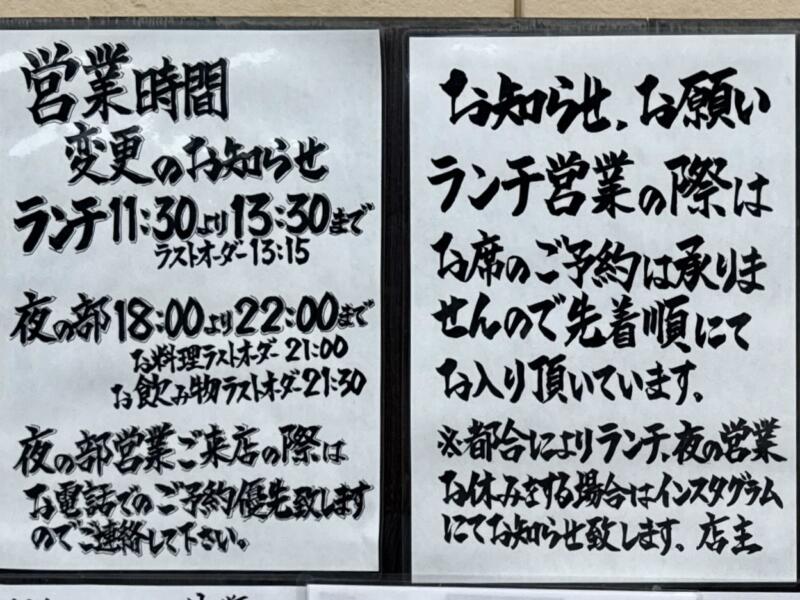 営業時間
変更のお知らせ
ランチ11:30より13:30まで
ラストオーダー13:15
夜の部18:00より22:00まで
お料理ラストオーダー21:00
お飲み物ラストオーダー21:30
夜の部営業ご来店の際は
お電話でのご予約優先致します
のでご連絡して下さい。
お知らせ、お願い
ランチ営業の際は
お席のご予約は承りま
せんので先着順にて
お入り頂いています。
※都合によりランチ、夜の営業
お休みをする場合はインスタグラム
にてお知らせ致します、店主